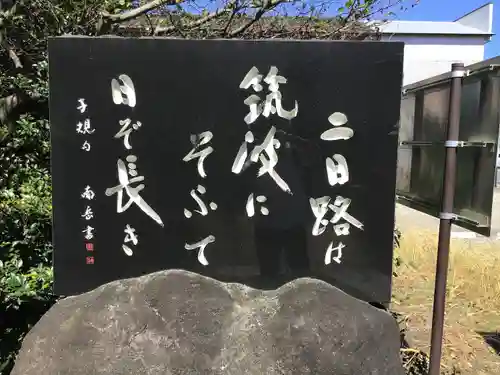 二日路は
筑波に
そふて
日ぞ長き
子規句 南岳書